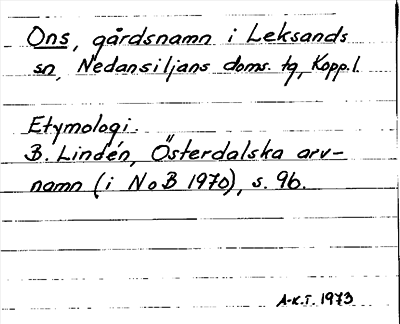 Ons, gårdsnamn i Leksands
sn, Nedansiljans doms. tg, Kopp.l.
Etymologi.
B. Lindén, Österdalska arv-
namn (i NoB 1970), s. 96.
A-K.T. 1973